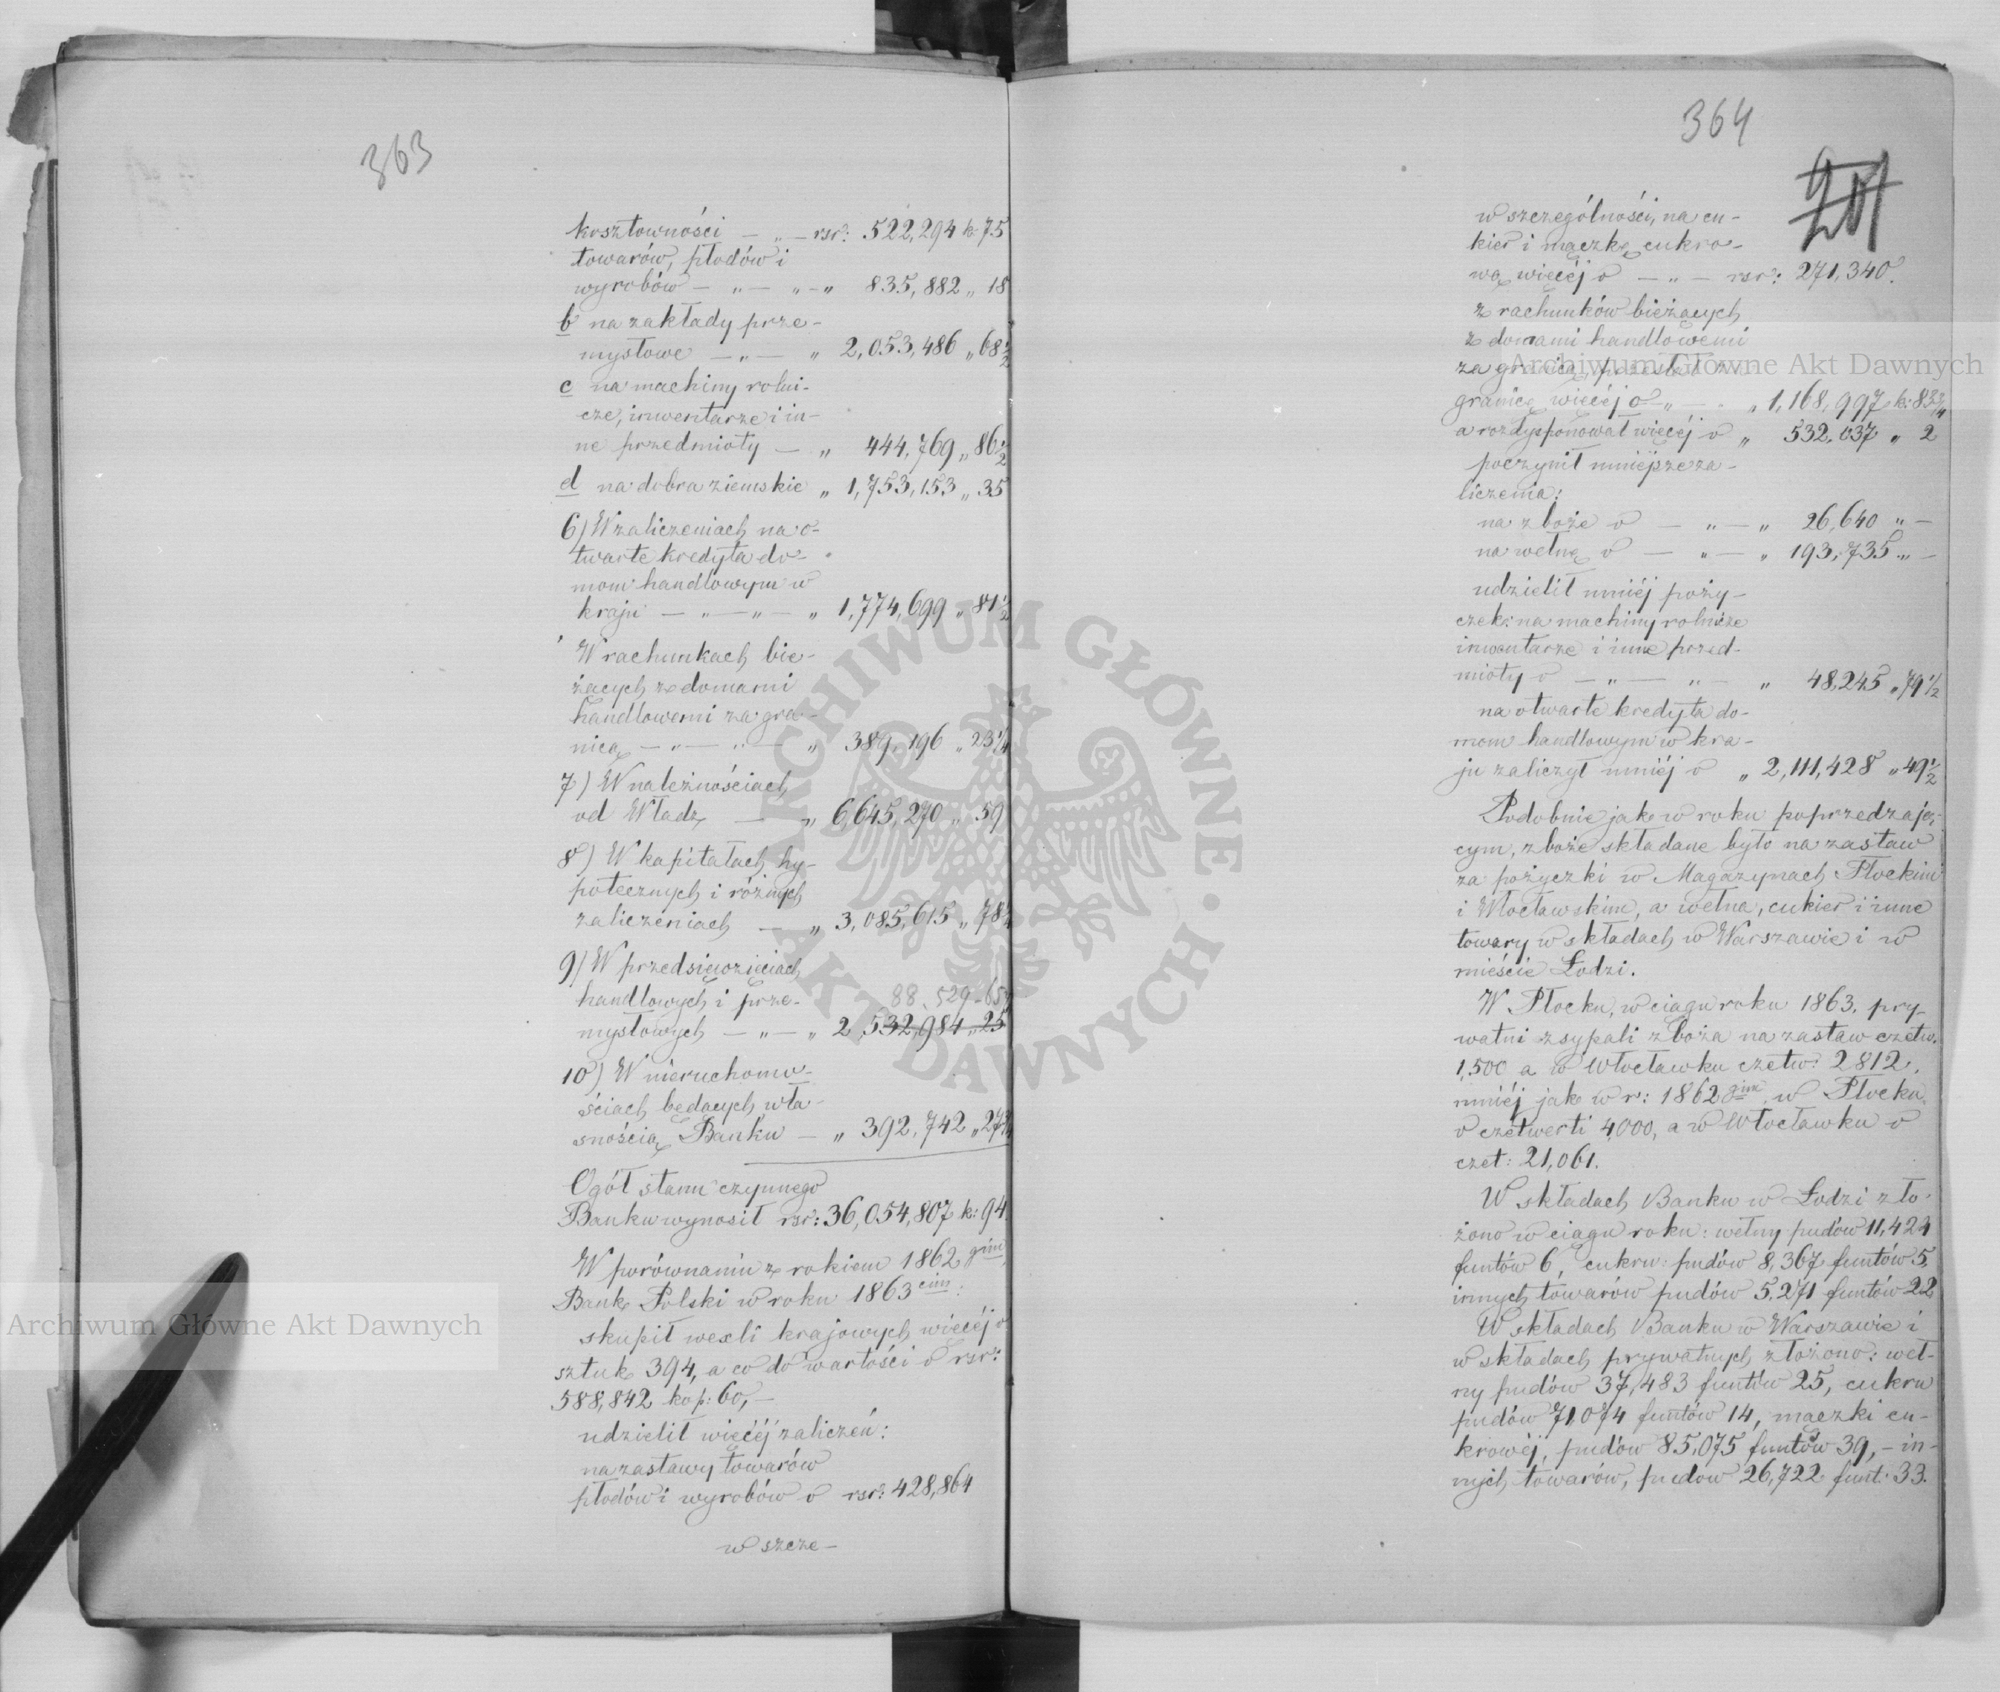 363
kosztowności — „ — rsr: 522,294 k. 75
towarów, płodów i
wyrobów — „ — „ — „ 835,882 „ 18
b na zakłady prze-
mysłowe — „ — „ 2,053,486 „ 68½
c na machiny rolni-
cze, inwentarze i in-
ne przedmioty — „ 444,769 „ 86½
d na dobra ziemskie „ 1,753,153 „ 35
6) W zaliczeniach na o-
twarte kredyta do-
mom handlowym w
kraju — „ — „ — „ 1,774,699 „ 81½
W rachunkach bie-
żących z domami
handlowemi za gra-
nicą — „ — „ — „ 389,196 „ 23¼
7) W należnościach
od Władz — „ 6,645,270 „ 59
8) W kapitałach hy-
potecznych i różnych
zaliczeniach — „ 3,085,615 „ 78
9) W przedsięwzięciach
handlowych i prze- 88.529-65
mysłowych — „ — „ 2,532,984 „ 25
10) W nieruchomo-
ściach będących wła-
snością Banku — „ 392,742 „ 27
Ogół stanu czynnego
Banku wynosił rsr: 36,054,807 k: 94
W porównaniu z rokiem 1862 gim
Bank Polski w roku 1863 cim:
skupił wexli krajowych więcéj o
sztuk 394, a co do wartości o rsr:
588,842 kop: 60, —
udzielił więcéj zaliczeń:
na zastawy towarów
płodów i wyrobów o rsr: 428,864
w szcze-
364
201
w szczególności, na cu-
kier i mączkę cukro-
wą więcéj o — „ — rsr: 271,340.
z rachunków bieżących
z domami handlowemi
za granicą, pozostało za
granicą więcéj o „ — „ 1,168,997 k: 83¾
a rozdysponował więcéj o „ 532,037 „ 2
poczynił mniejsze za-
liczenia:
na zboże o — „ — „ 26,640 „ —
na wełnę o — „ — „ 193,735 „ —
udzielił mniéj poży-
czek: na machiny rolnicze
inwentarze i inne przed-
mioty o — „ — „ — „ 48,245 „ 79½
na otwarte kredyta do-
mom handlowym w kra-
ju zaliczył mniéj o „ 2,111,428 „ 49½
Podobnie jak w roku poprzedzają-
cym, zboże składane było na zastaw
za pożyczki w Magazynach Płockim
i Włocławskim, a wełna, cukier i inne
towary w składach w Warszawie i w
mieście Łodzi.
W Płocku, w ciągu roku 1863, pry-
watni zsypali zboża na zastaw czetw.
1,500 a w Włocławku czetw: 2812,
mniéj jak w r: 1862 gim, w Płocku,
o czetwerti 4,000, a w Włocławku o
czet: 21,061.
W składach Banku w Łodzi zło-
żono w ciągu roku: wełny pudów 11,424
funtów 6, cukru: pudów 8,367 funtów 5,
innych towarów pudów 5,271 funtów 22
W składach Banku w Warszawie i
w składach prywatnych złożono: weł-
ny pudów 37,483 funtów 25, cukru
pudów 71,074 funtów 14, mączki cu-
krowéj, pudów 85,075 funtów 39, — in-
nych towarów, pudów 26,722 funt: 33.
Archiwum Główne Akt Dawnych
Archiwum Główne Akt Dawnych
ARCHIWUM GŁÓWNE · AKT DAWNYCH ·